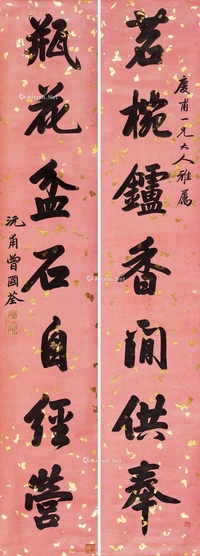 慶甫一兄大人雅屬
茗椀鑪香閒供奉
瓶花盆石自經營
沅甫曾國荃